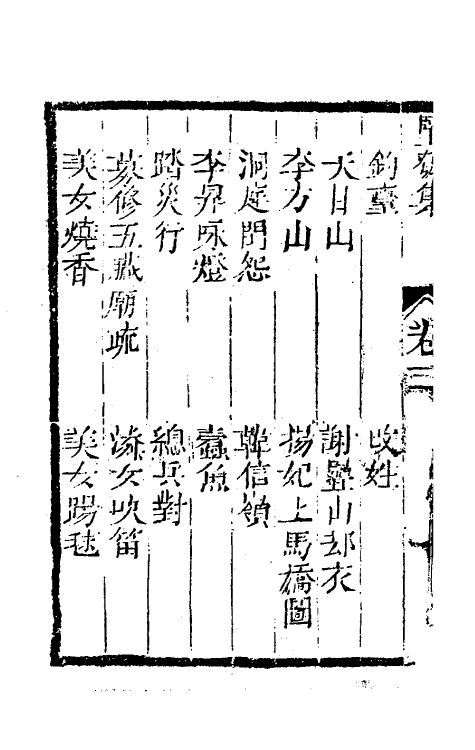 堅瓠集
卷三
釣臺
改姓
天目山
謝疊山却衣
李方山
楊妃上馬嬌圖
洞庭門怨
韓信嶺
李昇咏燈
蠹魚
踏災行
總兵對
募修五臟廟疏
漁女吹笛
美女燒香
美女踢毬